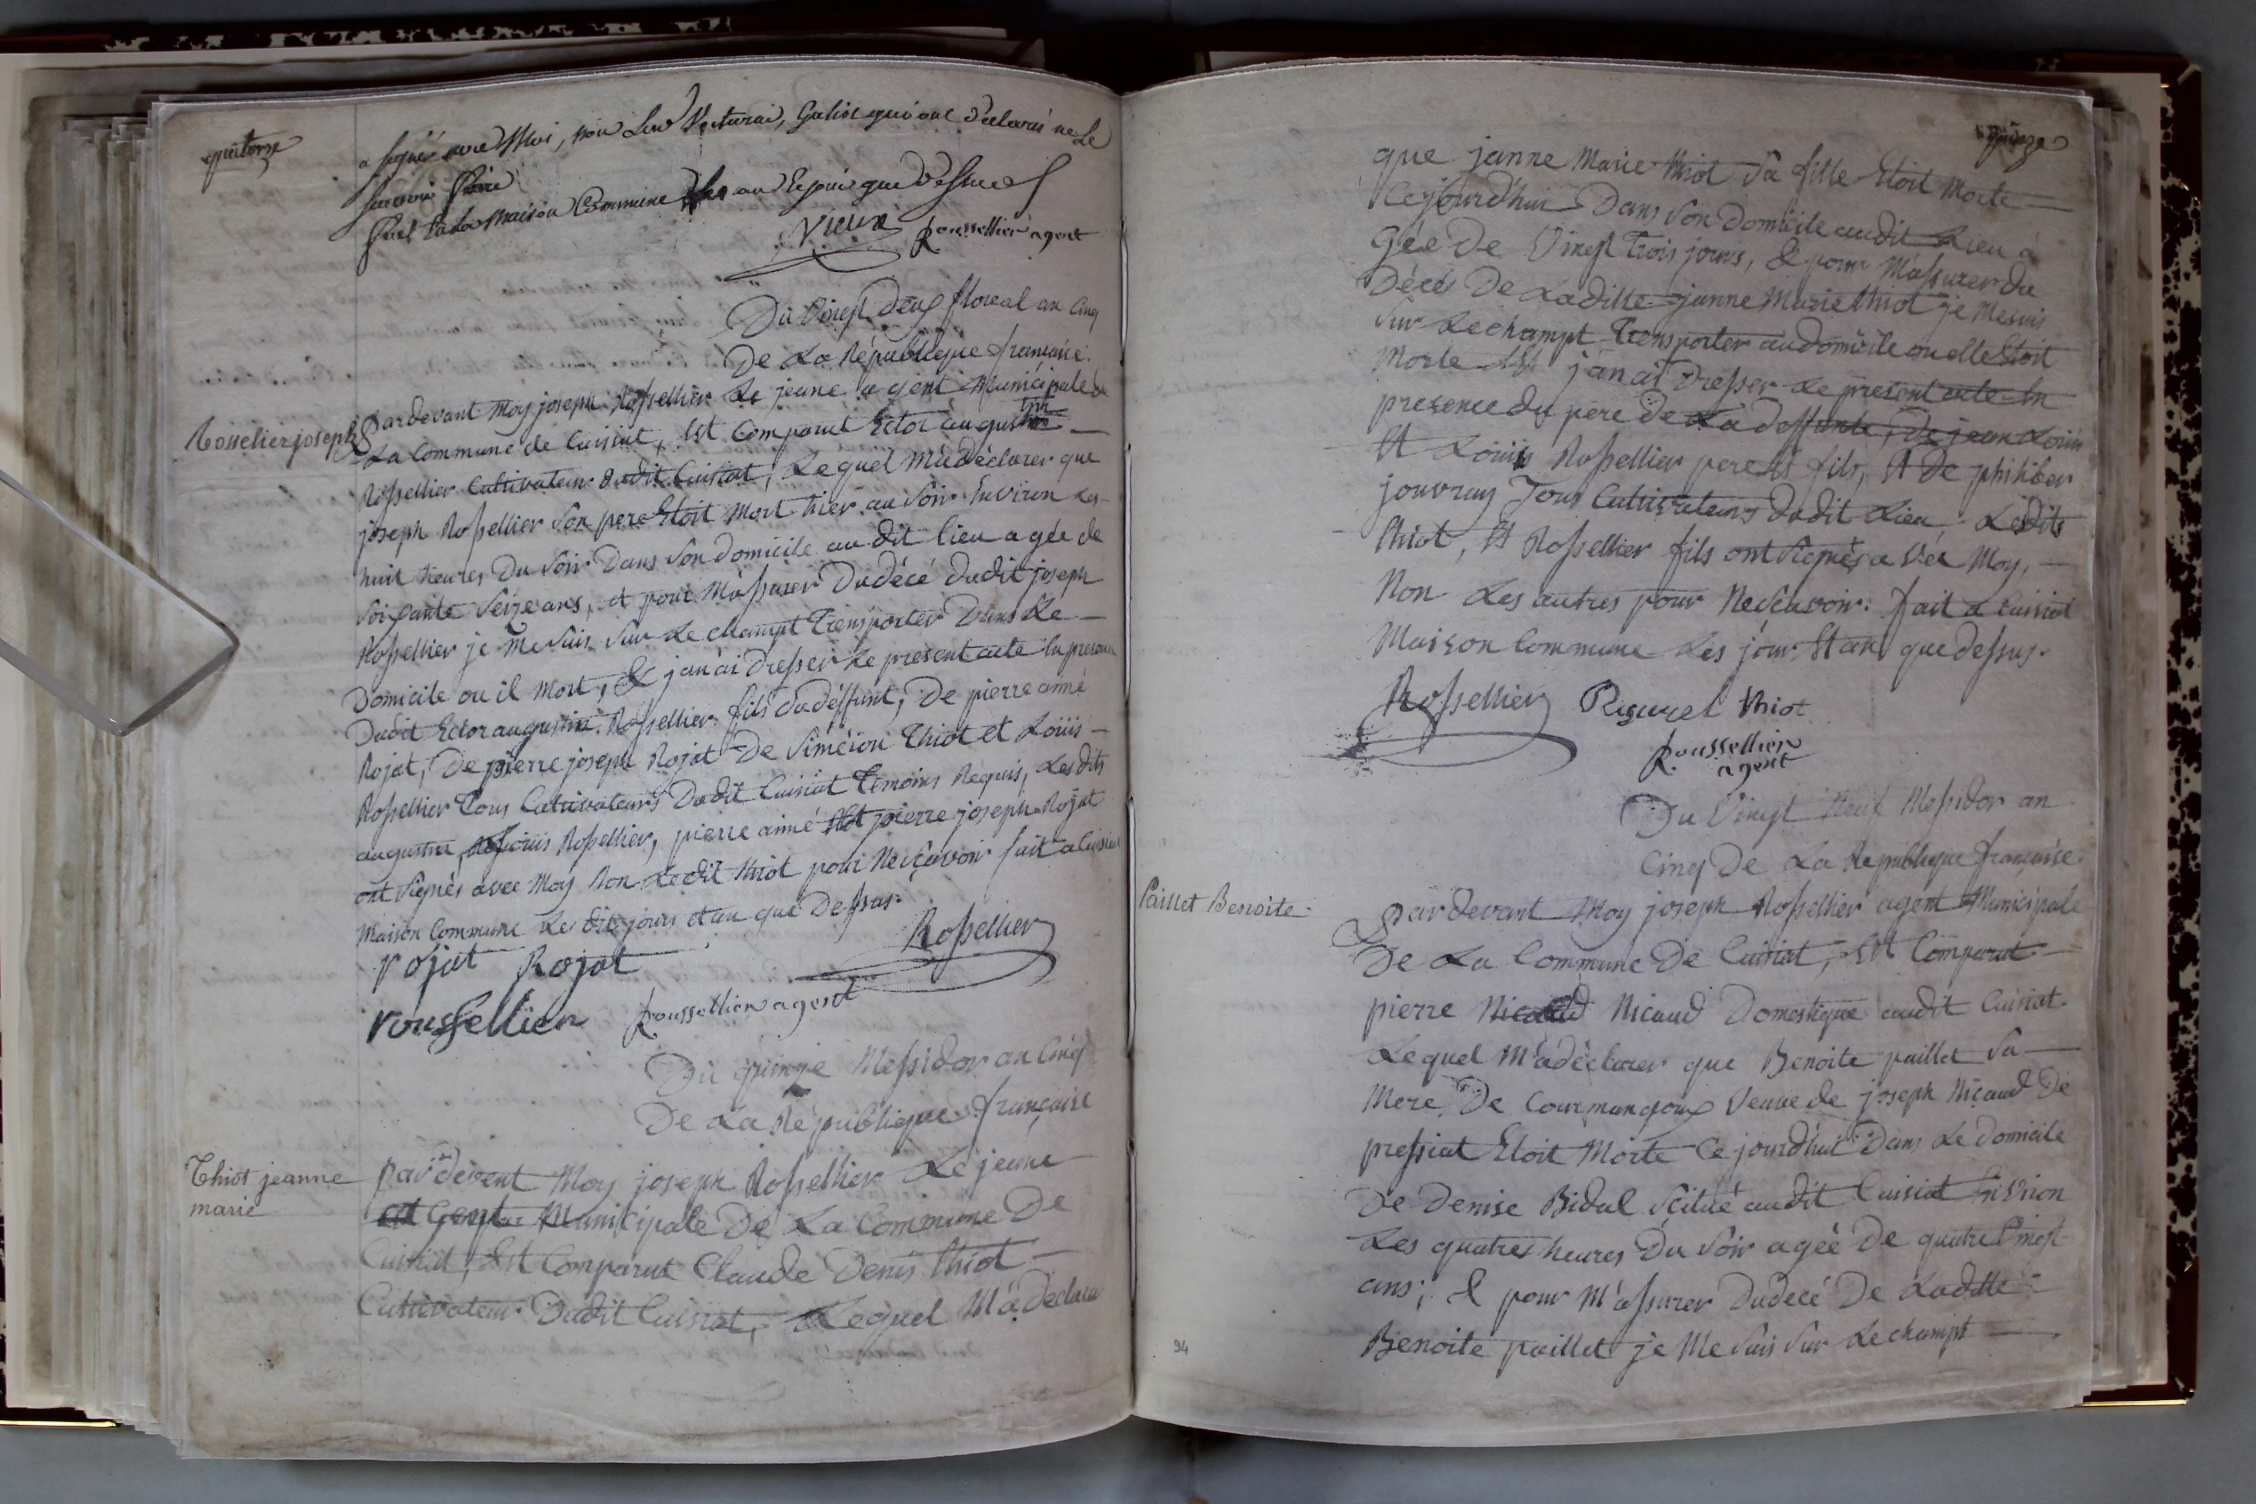 quatorze
a signé avec Moi, non Lesd Galiot qui ont déclaré ne le
savoir faire
fait à la Maison Commune les an Et jour que dessus
Vieux Roussellier agent
Du Vingt Deux floreal an Cinq
De La République française.
Rosselier joseph
Pardevant Moy joseph Rossellier Le jeune agent Municipale de
La Commune de Cuisiat, Est Comparut Ector augustin
Rossellier Cultivateur dudit Cuisiat, Lequel M'a déclarer que
joseph Rossellier Son pere Etoit Mort hier au Soir Environ Les
huit heures Du Soir Dans Son Domicile audit lieu agée de
Soixante Seize ans, et pour M'assurer Du décé dudit joseph
Rossellier je Me suis Sur Le champt Transporter Dans Le
Domicile ou il Mort, & j'an ai Dresser Le present acte En presence
Dudit Ector augustin Rossellier fils du déffunt, De pierre aimé
Rojat, De pierre joseph Rojat De Siméion Thiot et Loüis
Rossellier Tous Cultivateurs Dudit Cuisiat Temoins Requis, Lesdits
augustin, Loüis Rossellier, pierre aimé Et pierre joseph Rojat
ont signés avec Moy Non Ledit thiot pour Ne sçavoir fait a Cuisiat
Maison Commune Les dits jours et an que Dessus.
rojat Rojat Rossellier
roussellier Roussellier agent
Du quinze Messidor an Cinq
De La République française
Thiot jeanne
marie
Par devent Moy joseph Rossellier Le jeune
agent Municipale De La Commune De
Cuisiat, Est Comparut Claude Denis thiot
Cultivateur Dudit Cuisiat, Lequel M'a Declarer
quinze
que janne Marie thiot Sa fille Etoit Morte
Cejourd'huis Dans Son Domicile audit Lieu a
Gée De Vingt Trois jours, & pour M'assurer du
Décés De Laditte janne Marie thiot je Me suis
Sur Le champt Transporter au domicile ou elle Etoit
Morte Et j'an ai Dresser Le present acte En
presence du pere de La deffunte, De jean Loüis
Et Loüis Rossellier pere Et fils, Et De philiber
jouvray Tous Cultivateurs Dudit Lieu. Lesdits
thiot, Et Rossellier fils ont Signés a Vec Moy,
Non Les autres pour Ne sçavoir. fait a Cuisiat
Maison Commune Les jour Et an que dessus.
Rossellier thiot
Roussellier
agent
Du Vingt Neuf Messidor an
Cinq De La République française.
Paillet Benoite
Par devant Moy joseph Rossellier agent Municipale
De La Commune De Cuisiat, Est Comparut
pierre Nicaud Domestique audit Cuisiat
Lequel M'a déclarer que Benoite paillet Sa
Mere De Courmangoux Veuve de joseph Nicaud De
pressiat Etoit Morte Ce jourd'hui Dans Le domicile
De Denise Bidal Scitué audit Cuisiat Environ
Les quatres heures Du Soir agée De quatre Vingt
ans; & pour M'assurer Du decé De Laditte
Benoite paillet je Me Suis Sur Le champt
94